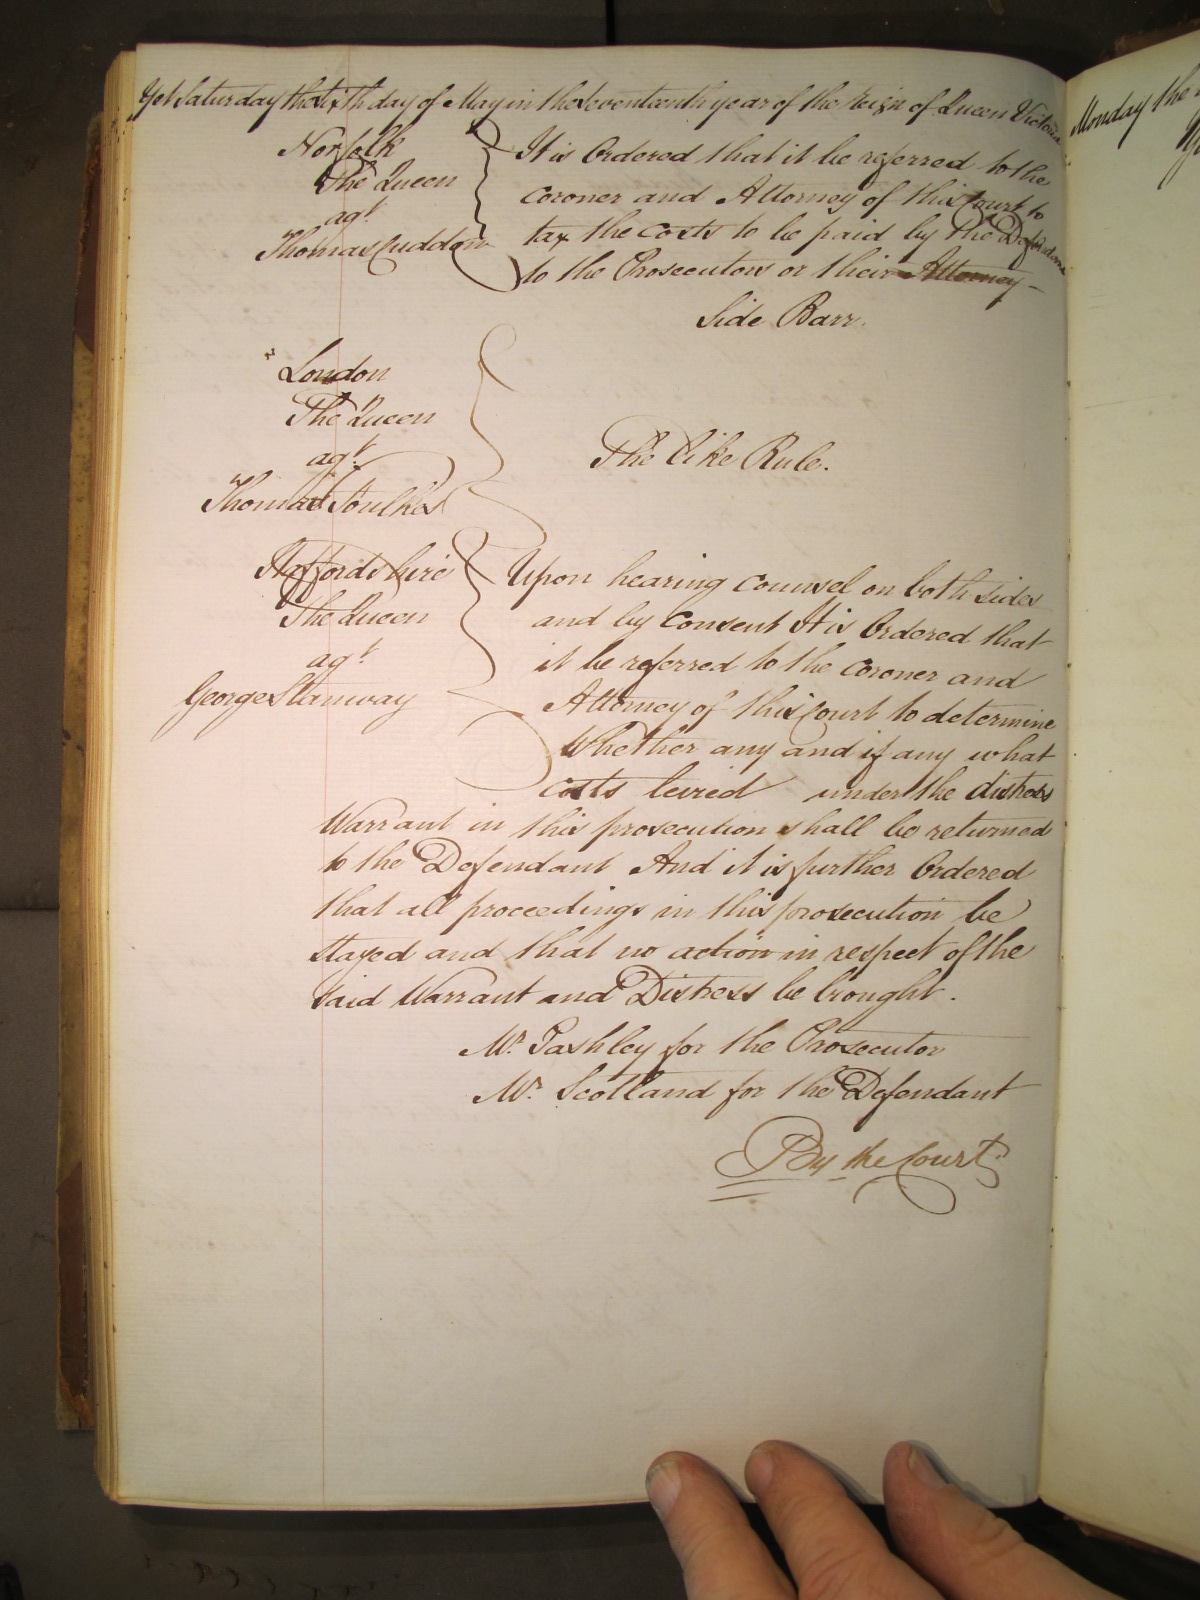 Yet Saturday the sixth day of May in the seventeenth year of the Reign of Queen Victoria
Norfolk
The Queen
agt
Thomas Cuddon
It is Ordered that it be referred to the
coroner and Attorney of this Court to
tax the costs to be paid by the Defendant
to the Prosecutors or their Attorney –
Side Barr.
London
The Queen
agt
Thomas Foulkes
The like Rule.
Staffordshire
The Queen
agt
George Stanway
Upon hearing counsel on both sides
and by consent It is Ordered that
it be referred to the coroner and
Attorney of this Court to determine
Whether any and if any what
costs levied under the distress
Warrant in this prosecution shall be returned
to the Defendant And it is further Ordered
that all proceedings in this prosecution be
stayed and that no action in respect of the
said Warrant and Distress be brought.
Mr. Pashley for the Prosecutor
Mr. Scotland for the Defendant
By the Court
Monday the